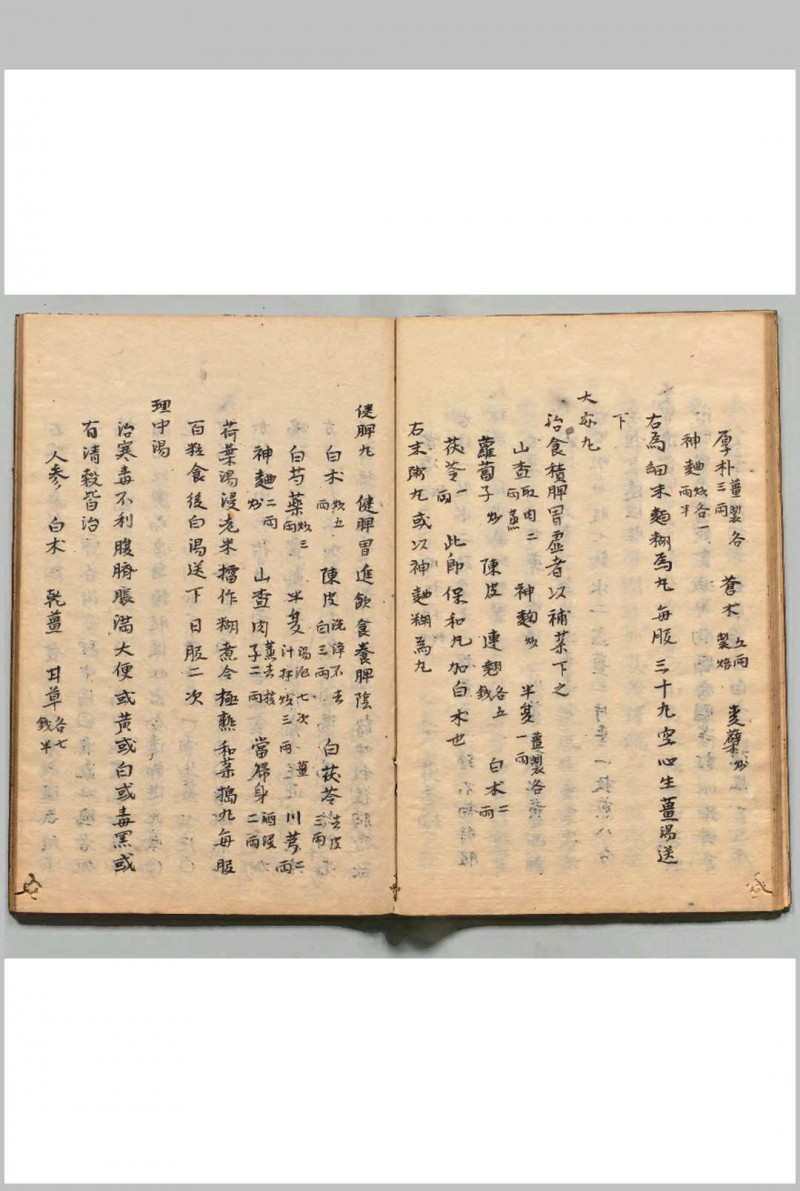 厚朴薑製各三兩 蒼朮五兩製焙 麦蘗炒
神麯炒各一兩半
右為細末麵糊為丸每服三十丸空心生薑湯送
下
大安丸
治食積脾胃虛者以補藥下之
山查取肉二兩蒸 神麴炒 半夏薑製各一兩
蘿蔔子炒 陳皮 連翹各五錢 白朮二兩
茯苓一兩 此即保和丸加白朮也
右末粥丸或以神麯糊為丸
健脾丸 健脾胃進飲食養脾陰
白朮炒五兩 陳皮洗淨不去白三兩 白茯苓去皮三兩
白芍藥炒三兩 半夏湯泡七次薑汁拌炒三兩 川芎二兩
神麯二兩炒 山查肉蒸去核子二兩 當歸身酒浸二兩
荷葉湯浸老米擂作糊煮令極熟和藥搗丸每服
百粒食後白湯送下日服二次
理中湯
治寒毒不利腹臍脹滿大便或黃或白或毒黑或
有清穀皆治
人參 白朮 乾薑 甘草各七錢半